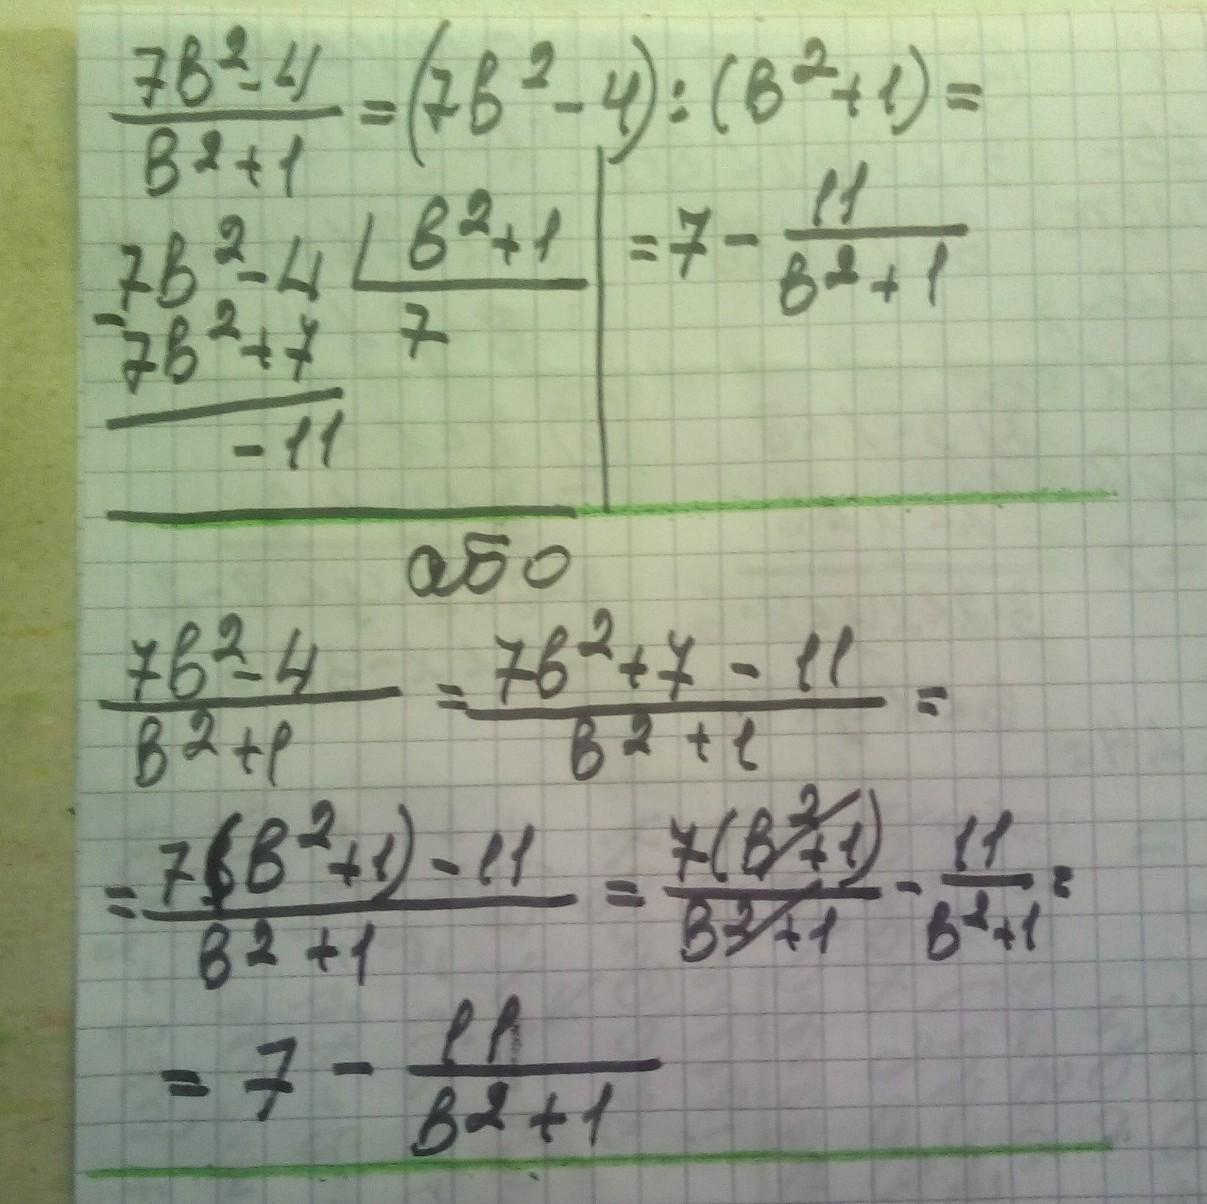 7в²-4/в²+1 = (7в²-4):(в²+1) =
7в²-4 | в²+1
-7в²+7 7
-11
= 7 - 11/в²+1
або
7в²-4/в²+1 = 7в²+7-11/в²+1 =
= 7(в²+1)-11/в²+1 = 7(в²+1)/в²+1 - 11/в²+1 =
= 7 - 11/в²+1